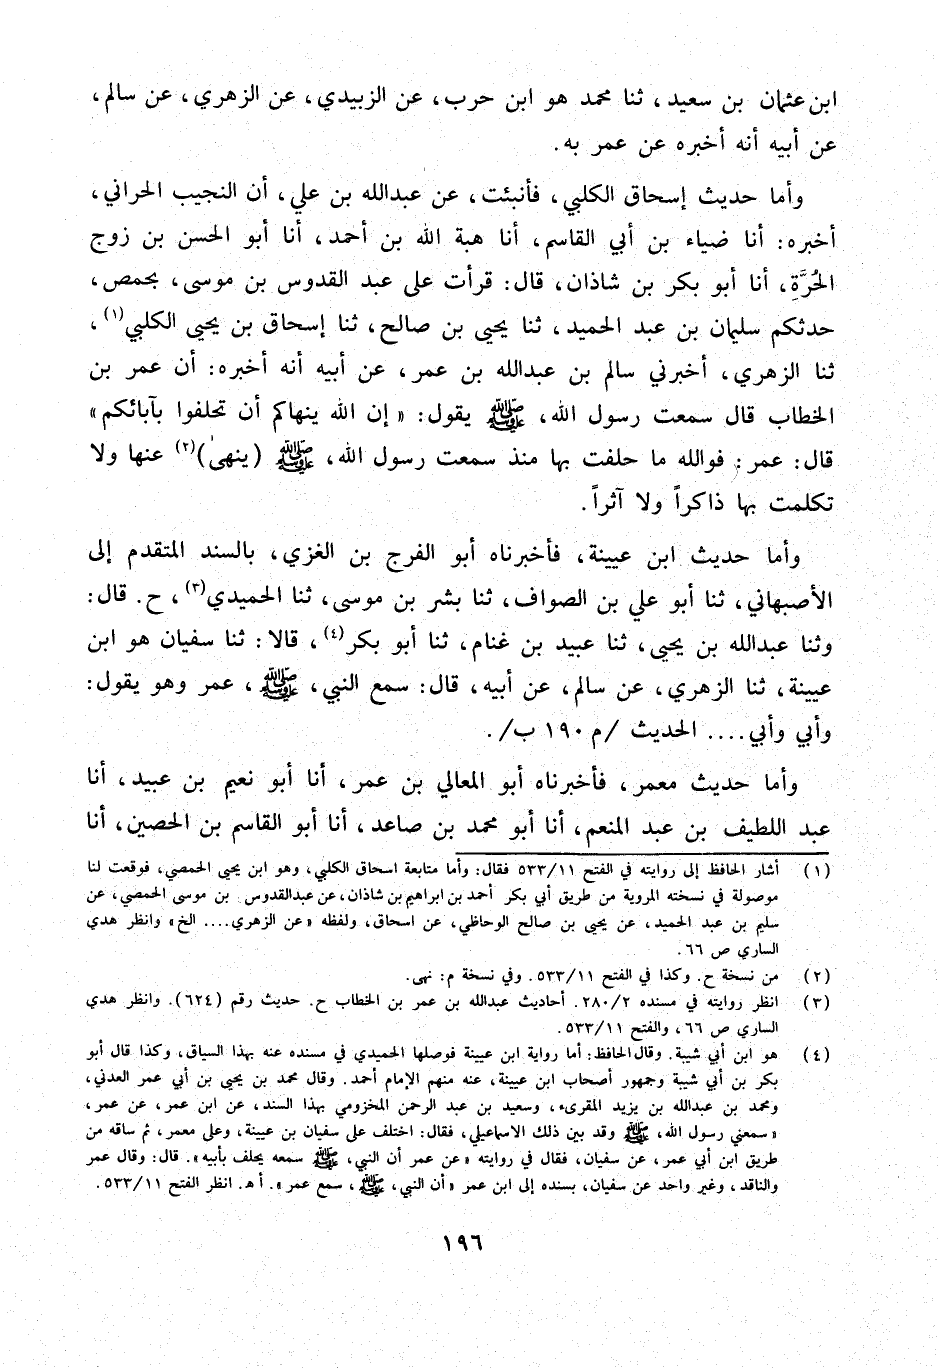 ابن عثمان بن سعيد، ثنا محمد هو ابن حرب، عن الزبيدي، عن الزهري، عن سالم،
عن أبيه أنه أخبره عن عمر به.
وأما حديث إسحاق الكلبي، فأنبئت، عن عبدالله بن علي، أن النجيب الحراني،
أخبره: أنا ضياء بن أبي القاسم، أنا هبة الله بن أحمد، أنا أبو الحسن بن زوج
الحُرَّةِ، أنا أبو بكر بن شاذان، قال: قرأت على عبد القدوس بن موسى، بحمص،
حدثكم سليمان بن عبد الحميد، ثنا يحيى بن صالح، ثنا إسحاق بن يحيى الكلبي(١)،
ثنا الزهري، أخبرني سالم بن عبدالله بن عمر، عن أبيه أنه أخبره: أن عمر بن
الخطاب قال سمعت رسول الله، ﷺ يقول: «إن الله ينهاكم أن تحلفوا بآبائكم»
قال: عمر: فوالله ما حلفت بها منذ سمعت رسول الله، ﷺ (ينهى)(٢) عنها ولا
تكلمت بها ذاكراً ولا آثراً.
وأما حديث ابن عيينة، فأخبرناه أبو الفرج بن الغزي، بالسند المتقدم إلى
الأصبهاني، ثنا أبو علي بن الصواف، ثنا بشر بن موسى، ثنا الحميدي(٣)، ح. قال:
وثنا عبدالله بن يحيى، ثنا عبيد بن غنام، ثنا أبو بكر(٤)، قالا: ثنا سفيان هو ابن
عيينة، ثنا الزهري، عن سالم، عن أبيه، قال: سمع النبي، ﷺ، عمر وهو يقول:
وأبي وأبي.... الحديث /م ١٩٠ ب/.
وأما حديث معمر، فأخبرناه أبو المعالي بن عمر، أنا أبو نعيم بن عبيد، أنا
عبد اللطيف بن عبد المنعم، أنا أبو محمد بن صاعد، أنا أبو القاسم بن الحصين، أنا
(١) أشار الحافظ إلى روايته في الفتح ٥٣٣/١١ فقال: وأما متابعة اسحاق الكلبي، وهو ابن يحيى الحمصي، فوقعت لنا
موصولة في نسخته المروية من طريق أبي بكر أحمد بن ابراهيم بن شاذان، عن عبدالقدوس بن موسى الحمصي، عن
سليم بن عبد الحميد، عن يحيى بن صالح الوحاظي، عن اسحاق، ولفظه «عن الزهري.... الخ» وانظر هدي
الساري ص ٦٦.
(٢) من نسخة ح. وكذا في الفتح ٥٣٣/١١. وفي نسخة م: نهى.
(٣) انظر روايته في مسنده ٢٨٠/٢. أحاديث عبدالله بن عمر بن الخطاب ح. حديث رقم (٦٢٤). وانظر هدي
الساري ص ٦٦، والفتح ٥٣٣/١١.
(٤) هو ابن أبي شيبة. وقال الحافظ: أما رواية ابن عيينة فوصلها الحميدي في مسنده عنه بهذا السياق، وكذا قال أبو
بكر بن أبي شيبة وجمهور أصحاب ابن عيينة، عنه منهم الإمام أحمد. وقال محمد بن يحيى بن أبي عمر العدني،
ومحمد بن عبدالله بن يزيد المقرىء، وسعيد بن عبد الرحمن المخزومي بهذا السند، عن ابن عمر، عن عمر،
«سمعني رسول الله، ﷺ وقد بين ذلك الاسماعيلي، فقال: اختلف على سفيان بن عيينة، وعلى معمر، ثم ساقه من
طريق ابن أبي عمر، عن سفيان، فقال في روايته «عن عمر أن النبي، ﷺ سمعه يحلف بأبيه». قال: وقال عمر
والناقد، وغير واحد عن سفيان، بسنده إلى ابن عمر «أن النبي، ﷺ، سمع عمر». أ هـ. انظر الفتح ٥٣٣/١١.
١٩٦